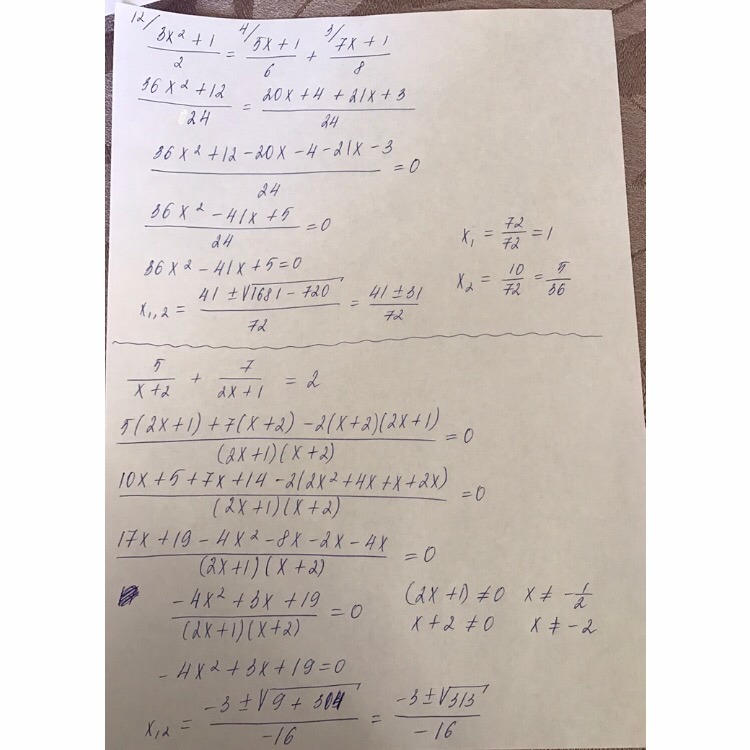 12/ 3x² + 1 / 2 = 4/ 5x + 1 / 6 + 3/ 7x + 1 / 8
36x² + 12 / 24 = 20x + 4 + 21x + 3 / 24
36x² + 12 - 20x - 4 - 21x - 3 / 24 = 0
36x² - 41x + 5 / 24 = 0
x₁ = 72/72 = 1
36x² - 41x + 5 = 0
x₂ = 10/72 = 5/36
x₁,₂ = 41 ± √1681 - 720 / 72 = 41 ± 31 / 72
5 / x+2 + 7 / 2x+1 = 2
5(2x+1) + 7(x+2) - 2(x+2)(2x+1) / (2x+1)(x+2) = 0
10x + 5 + 7x + 14 - 2(2x² + 4x + x + 2x) / (2x+1)(x+2) = 0
17x + 19 - 4x² - 8x - 2x - 4x / (2x+1)(x+2) = 0
-4x² + 3x + 19 / (2x+1)(x+2) = 0
(2x+1) ≠ 0 x ≠ -1/2
x + 2 ≠ 0 x ≠ -2
-4x² + 3x + 19 = 0
x₁,₂ = -3 ± √9 + 304 / -16 = -3 ± √313 / -16